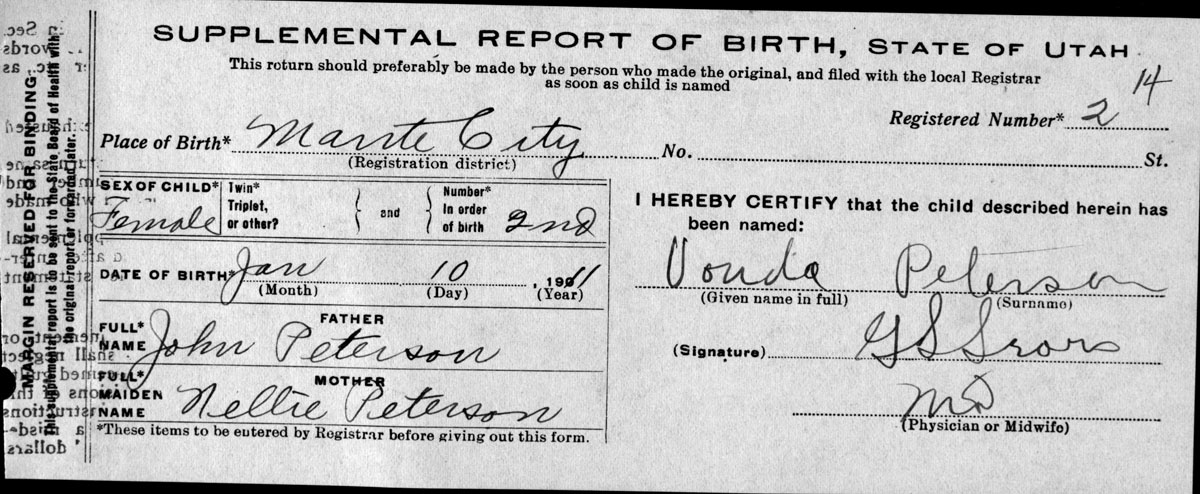 SUPPLEMENTAL REPORT OF BIRTH, STATE OF UTAH
This return should preferably be made by the person who made the original, and filed with the local Registrar
as soon as child is named
14
Registered Number* 2
Place of Birth* Mante City No. St.
(Registration district)
SEX OF CHILD* Female
Twin* Triplet, or other?
and
Number* In order of birth 2nd
DATE OF BIRTH* Jan 10, 1911
(Month) (Day) (Year)
FATHER
FULL* NAME John Peterson
MOTHER
FULL* MAIDEN NAME Nellie Peterson
*These items to be entered by Registrar before giving out this form.
I HEREBY CERTIFY that the child described herein has
been named:
Vonda Peterson
(Given name in full) (Surname)
(Signature) G S
MD
(Physician or Midwife)
MARGIN RESERVED FOR BINDING
This supplemental report is to be sent to the State Board of Health with
the original report or forwarded later.